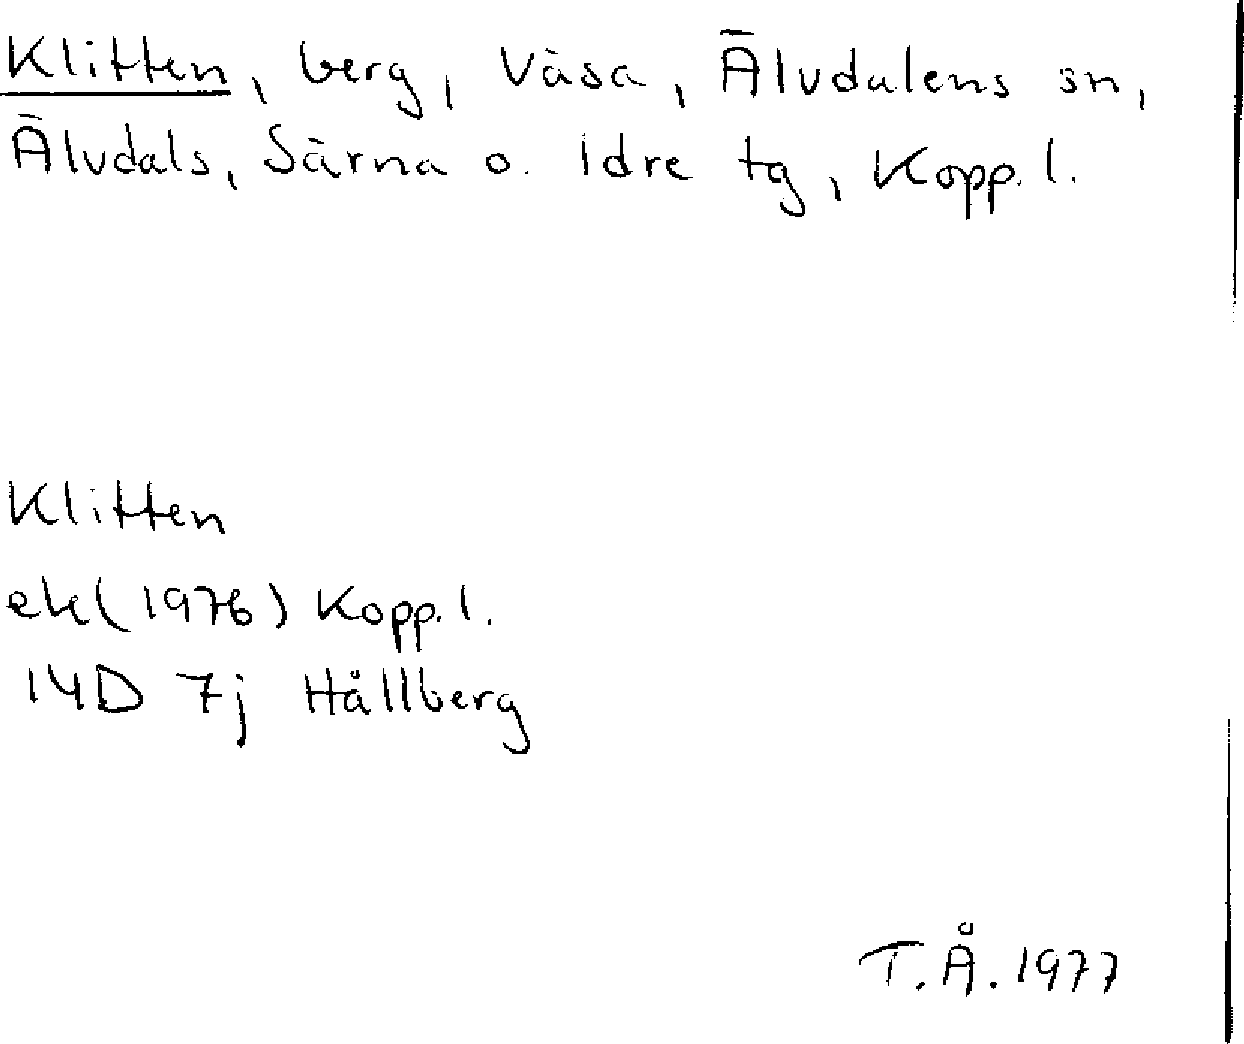 Klitten, berg, Väsa, Älvdalens sn,
Älvdals, Särna o. Idre tg, Kopp. l.
Klitten
ek(1976) Kopp. l.
14D 7j Hållberg
T.Å. 1977